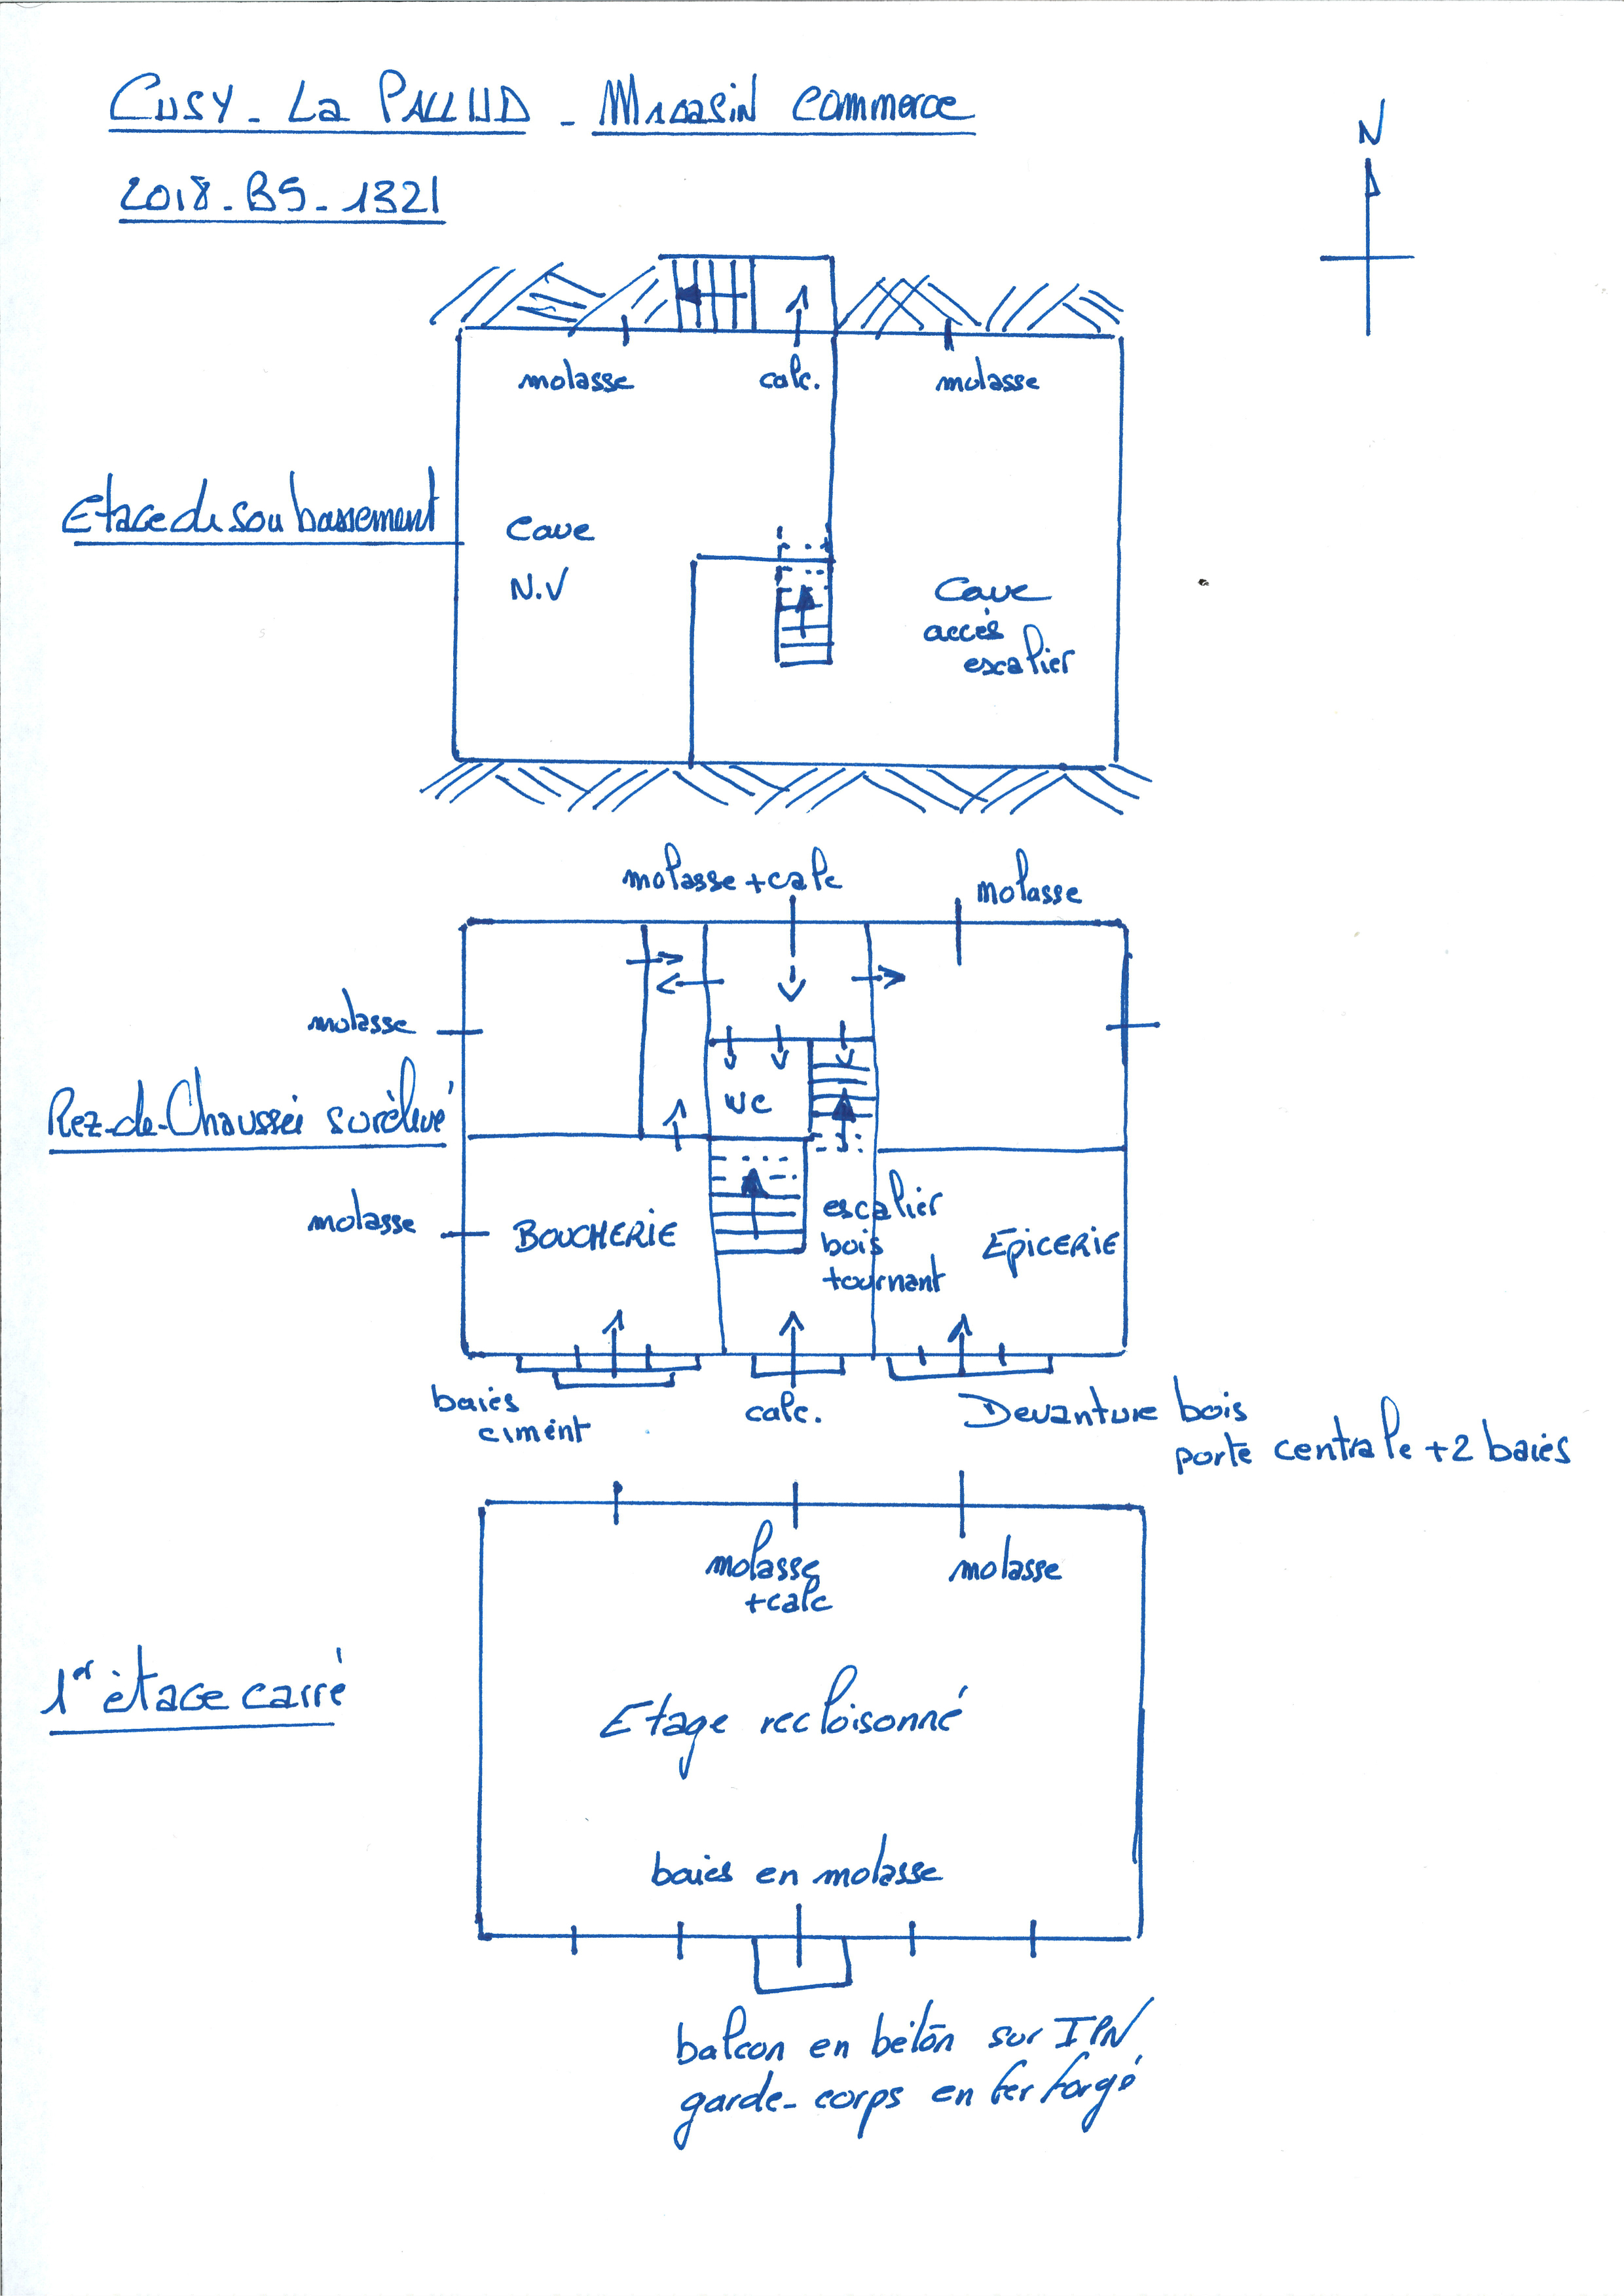 CUSY - La PALLUD - Magasin commerce
2018 - BS - 1321
N
molasse
calc.
molasse
Etage de soubassement
Cave
N.V
Cave
accès
escalier
molasse + calc
molasse
molasse
Rez-de-Chaussée surélevé
WC
molasse
BOUCHERIE
escalier
bois
tournant
EPICERIE
baies
ciment
calc.
Devanture bois
porte centrale + 2 baies
molasse
+ calc
molasse
1er étage carré
Etage recloisonné
baies en molasse
balcon en béton sur IPN
garde-corps en fer forgé